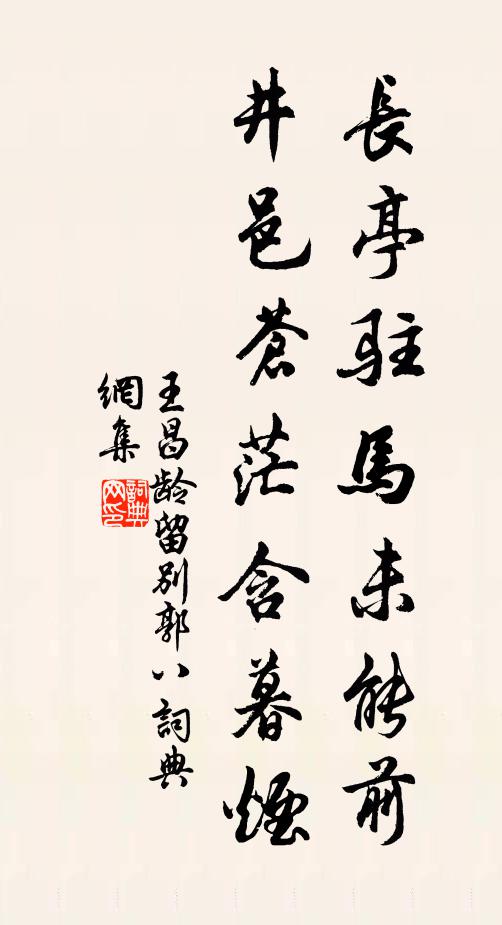 長亭駐馬未能前
井邑蒼茫含暮煙
王昌龄留別郭八詞典
網集
詞典
网印